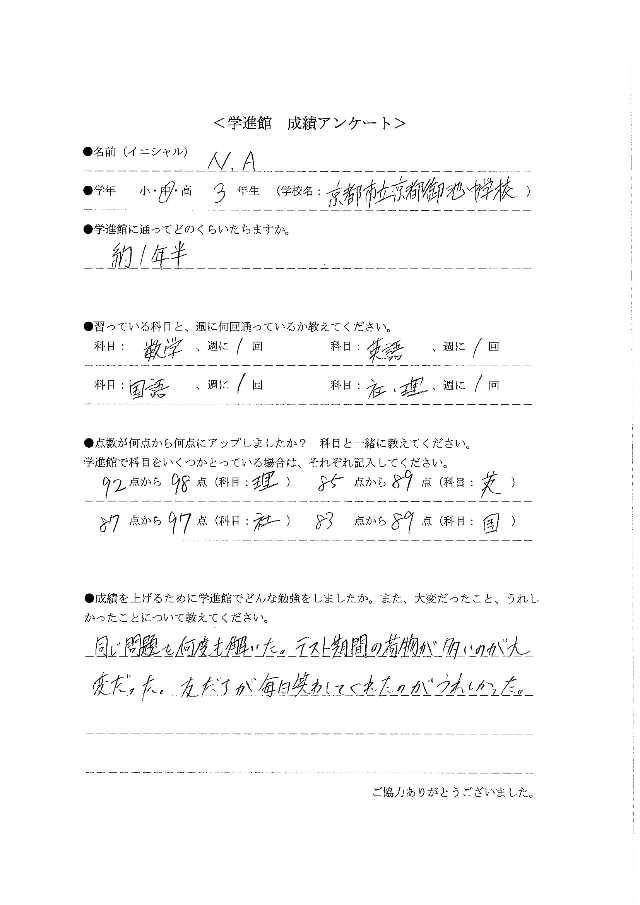 ＜学進館　成績アンケート＞
●名前（イニシャル）　N.A
●学年　小・中・高　3　年生　（学校名：京都市立京都御池中学校　）
●学進館に通ってどのくらいたちますか。
約1年半
●習っている科目と、週に何回通っているか教えてください。
科目：　数学　、週に　1　回　　科目：　英語　、週に　1　回
科目：国語　、週に　1　回　　科目：　社・理　、週に　1　回
●点数が何点から何点にアップしましたか？　科目と一緒に教えてください。
学進館で科目をいくつかとっている場合は、それぞれ記入してください。
92　点から　98　点（科目：理　）　85　点から　89　点（科目：　英　）
87　点から　97　点（科目：社　）　83　点から　89　点（科目：　国　）
●成績を上げるために学進館でどんな勉強をしましたか。また、大変だったこと、うれし
かったことについて教えてください。
同じ問題を何度も解いた。テスト期間の荷物が多いのが大
変だった。友だちが毎日笑わしてくれたのがうれしかった。
ご協力ありがとうございました。